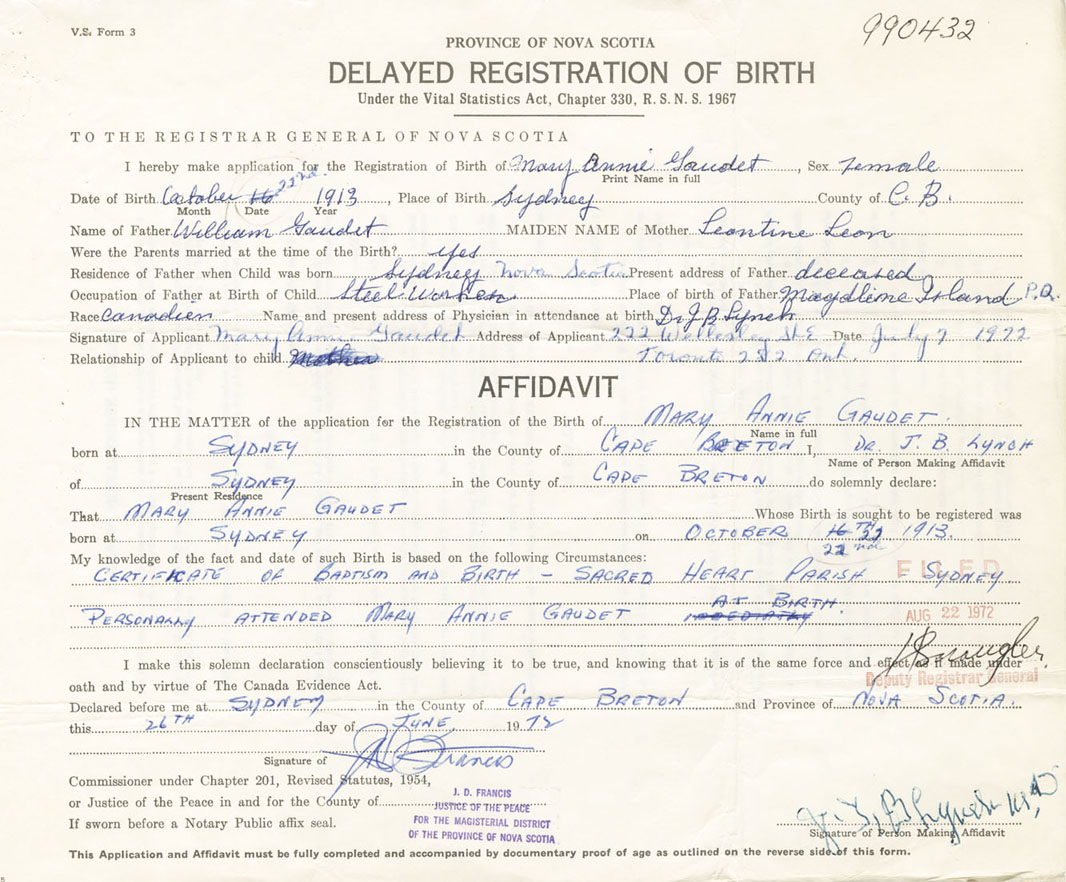 V.S. Form 3
990432
PROVINCE OF NOVA SCOTIA
DELAYED REGISTRATION OF BIRTH
Under the Vital Statistics Act, Chapter 330, R. S. N. S. 1967
TO THE REGISTRAR GENERAL OF NOVA SCOTIA
I hereby make application for the Registration of Birth of Mary Annie Gaudet, Sex Female
Print Name in full
22nd
Date of Birth October 16 1913, Place of Birth Sydney County of C. B.
Month Date Year
Name of Father William Gaudet MAIDEN NAME of Mother Leontine Leon
Were the Parents married at the time of the Birth? yes
Residence of Father when Child was born Sydney Nova Scotia Present address of Father deceased
Occupation of Father at Birth of Child Steel Worker Place of birth of Father Magdline Island P.Q.
Race Canadien Name and present address of Physician in attendance at birth Dr J B Lynch
Signature of Applicant Mary Annie Gaudet Address of Applicant 222 Wellesley St E Date July 7 1972
Relationship of Applicant to child Mother Toronto 282 Ont.
AFFIDAVIT
IN THE MATTER of the application for the Registration of the Birth of MARY ANNIE GAUDET.
Name in full
born at SYDNEY in the County of CAPE BRETON I, DR. J. B. LYNCH
Name of Person Making Affidavit
of SYDNEY in the County of CAPE BRETON do solemnly declare:
Present Residence
That MARY ANNIE GAUDET Whose Birth is sought to be registered was
born at SYDNEY on OCTOBER 16TH 22 1913.
22nd
My knowledge of the fact and date of such Birth is based on the following Circumstances:
CERTIFICATE OF BAPTISM AND BIRTH - SACRED HEART PARISH - SYDNEY
FILED
AT BIRTH.
PERSONALLY ATTENDED MARY ANNIE GAUDET
AUG 22 1972
I make this solemn declaration conscientiously believing it to be true, and knowing that it is of the same force and effect as if made under
oath and by virtue of The Canada Evidence Act.
Deputy Registrar General
Declared before me at SYDNEY in the County of CAPE BRETON and Province of NOVA SCOTIA.
this 26TH day of JUNE, 1972
J D Francis
Signature of
Commissioner under Chapter 201, Revised Statutes, 1954,
or Justice of the Peace in and for the County of
If sworn before a Notary Public affix seal.
J. D. FRANCIS
JUSTICE OF THE PEACE
FOR THE MAGISTERIAL DISTRICT
OF THE PROVINCE OF NOVA SCOTIA
Signature of Person Making Affidavit
This Application and Affidavit must be fully completed and accompanied by documentary proof of age as outlined on the reverse side of this form.